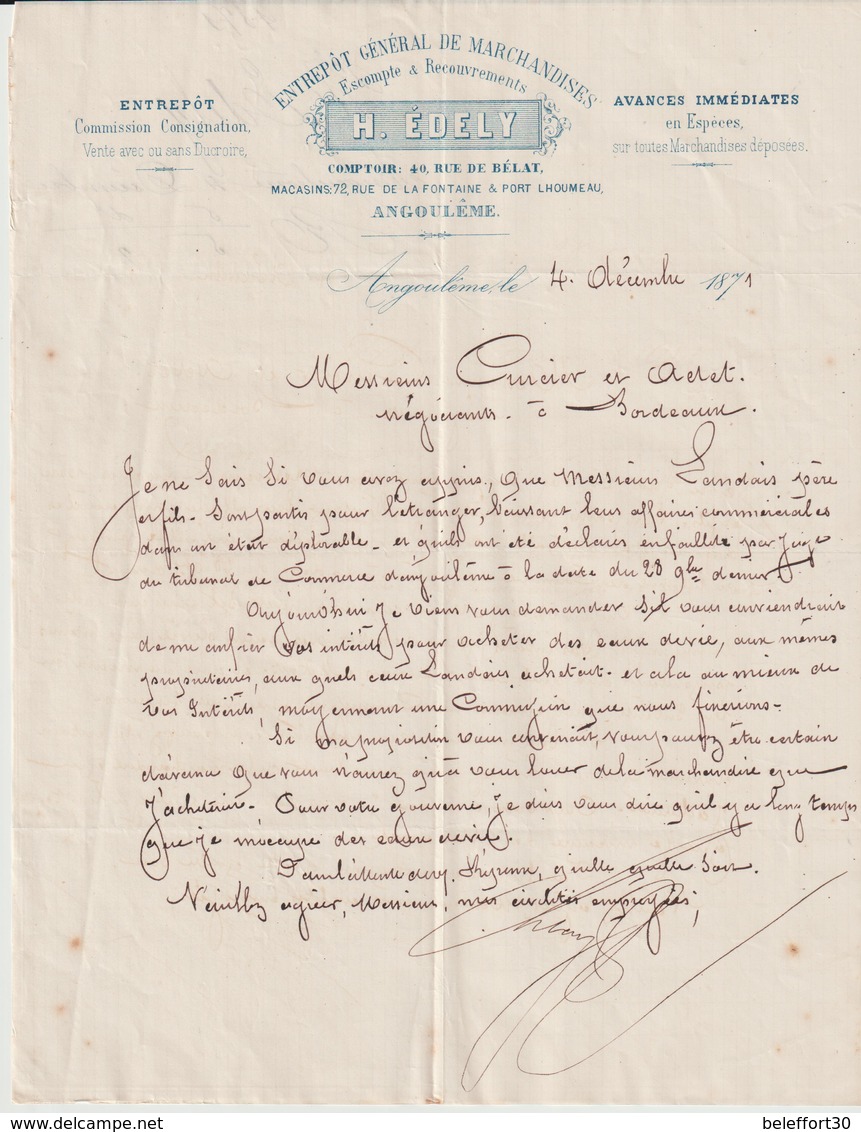 ENTREPÔT GÉNÉRAL DE MARCHANDISES
Escompte & Recouvrements
H. ÉDELY
COMPTOIR: 40, RUE DE BÉLAT,
MAGASINS: 72, RUE DE LA FONTAINE & PORT LHOUMEAU,
ANGOULÊME.
ENTREPÔT
Commission Consignation,
Vente avec ou sans Ducroire,
AVANCES IMMÉDIATES
en Espèces,
sur toutes Marchandises déposées.
Angoulême, le 4. décembre 1871
Messieurs Curcier et Adet.
négociants. à Bordeaux.
Je ne sais si vous avez appris, que Messieurs Landais père
et fils. sont partis pour l'étranger, laissant leurs affaires commerciales
dans un état déplorable. et qu'ils ont été déclarés en faillite par juge
du tribunal de Commerce d'angoulême à la date du 28 9bre dernier.
Aujourd'hui je viens vous demander s'il vous conviendrait
de me confier vos intérêts pour acheter des eaux de vie, aux mêmes
propriétaires, aux quels ceux Landais achetait. et cela au mieux de
vos Intérêts, moyennant une Commission que nous fixerions.
Si ma proposition vous convenait, vous pouvez être certain
d'avance que vous n'aurez qu'à vous louer de la marchandise que
j'achèterai. Pour votre gouverne, je dois vous dire qu'il y a long temps
que je m'occupe des eaux de vie.
Dans l'attente de Réponse, quelle quelle soit.
Veuillez agréer, Messieurs, mes civilités empressées,
beleffort30